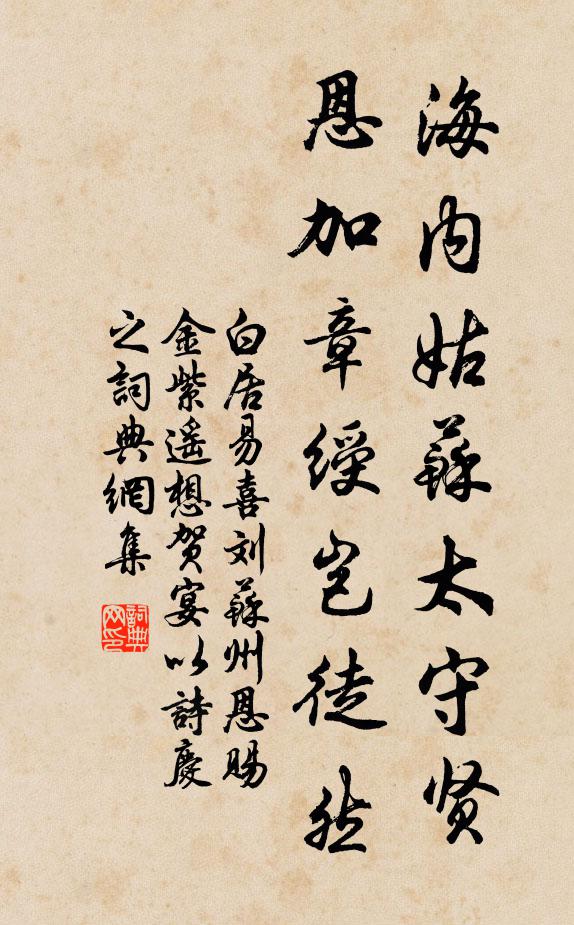 海内姑蘇太守贤
恩加章綬岂徒然
白居易喜刘蘇州恩賜
金紫遥想贺宴以詩慶
之詞典網集
詞典
网印